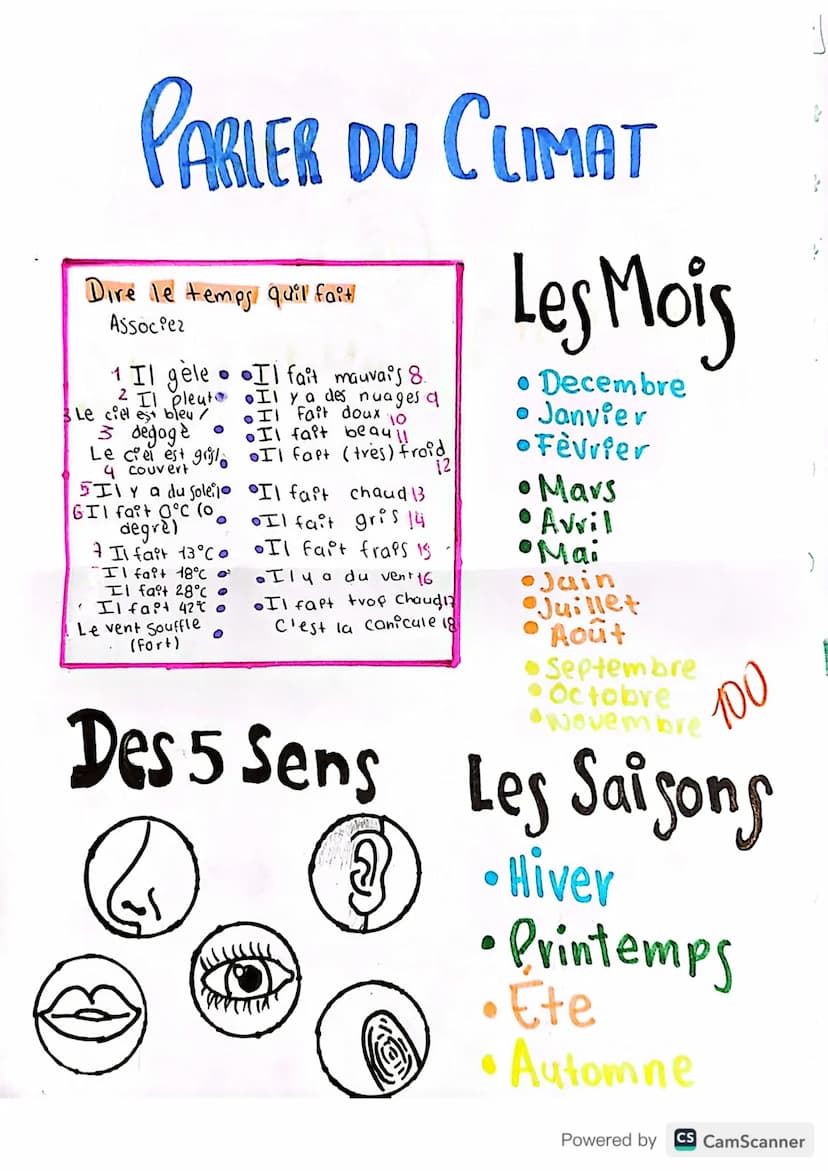 PARLER DU CLIMAT
Dire le temps qu'il fait
Associez
1 Il gèle
2 Il pleut
3 Le ciel est bleu /
3 dégagé
Le ciel est gris/
4 couvert
5 Il y a du soleil
6 Il fait 0°C (0
degré)
7 Il fait 13°C
Il fait 18°C
Il fait 28°C
Il fait 42°C
Le vent souffle
(fort)
Il fait mauvais 8
Il y a des nuages 9
Il fait doux 10
Il fait beau 11
Il fait (très) froid
12
Il fait chaud 13
Il fait gris 14
Il fait frais 15
Il y a du vent 16
Il fait trop chaud 17
C'est la canicule 18
Les Mois
Decembre
Janvier
Fèvrier
Mars
Avril
Mai
Juin
Juillet
Août
Septembre
Octobre
Novembre
100
Des 5 Sens
Les Saisons
Hiver
Printemps
Éte
Automne
Powered by CS CamScanner